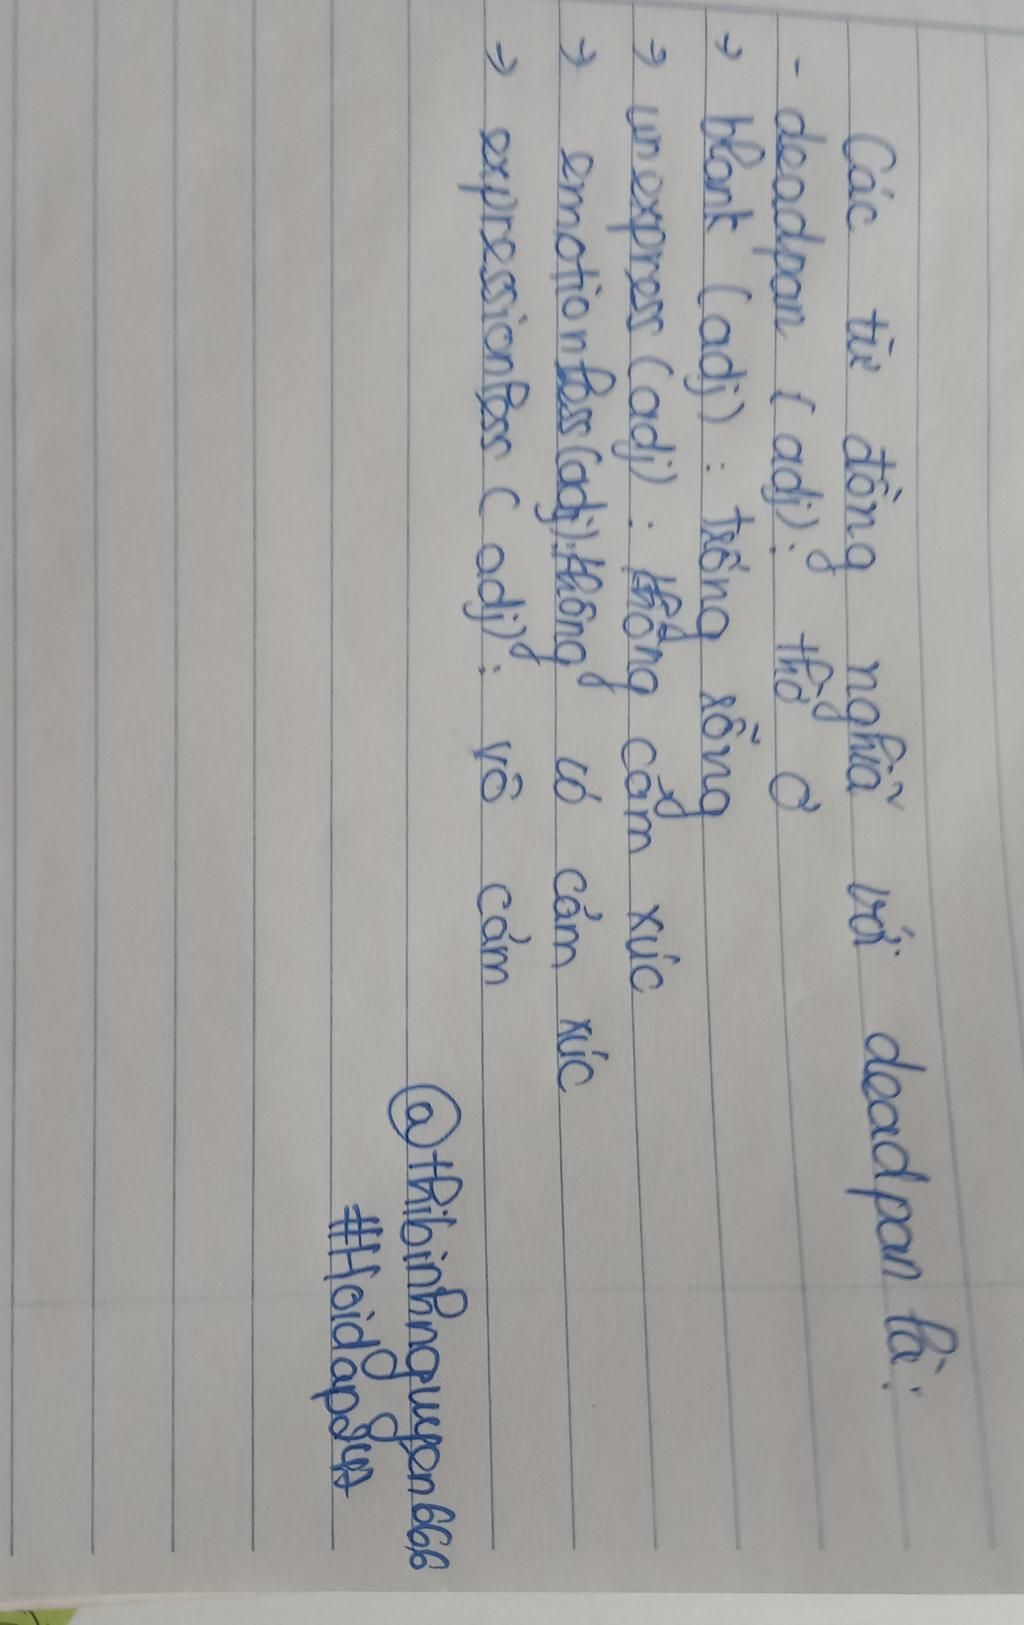 Các từ đồng nghĩa với deadpan là:
- deadpan (adj): thờ ơ
→ blank (adj) : trống rỗng
→ unexpress (adj) : không cảm xúc
→ emotionless (adj): không có cảm xúc
→ expressionless (adj) : vô cảm
@thibinhnguyen666
#Hoidap247